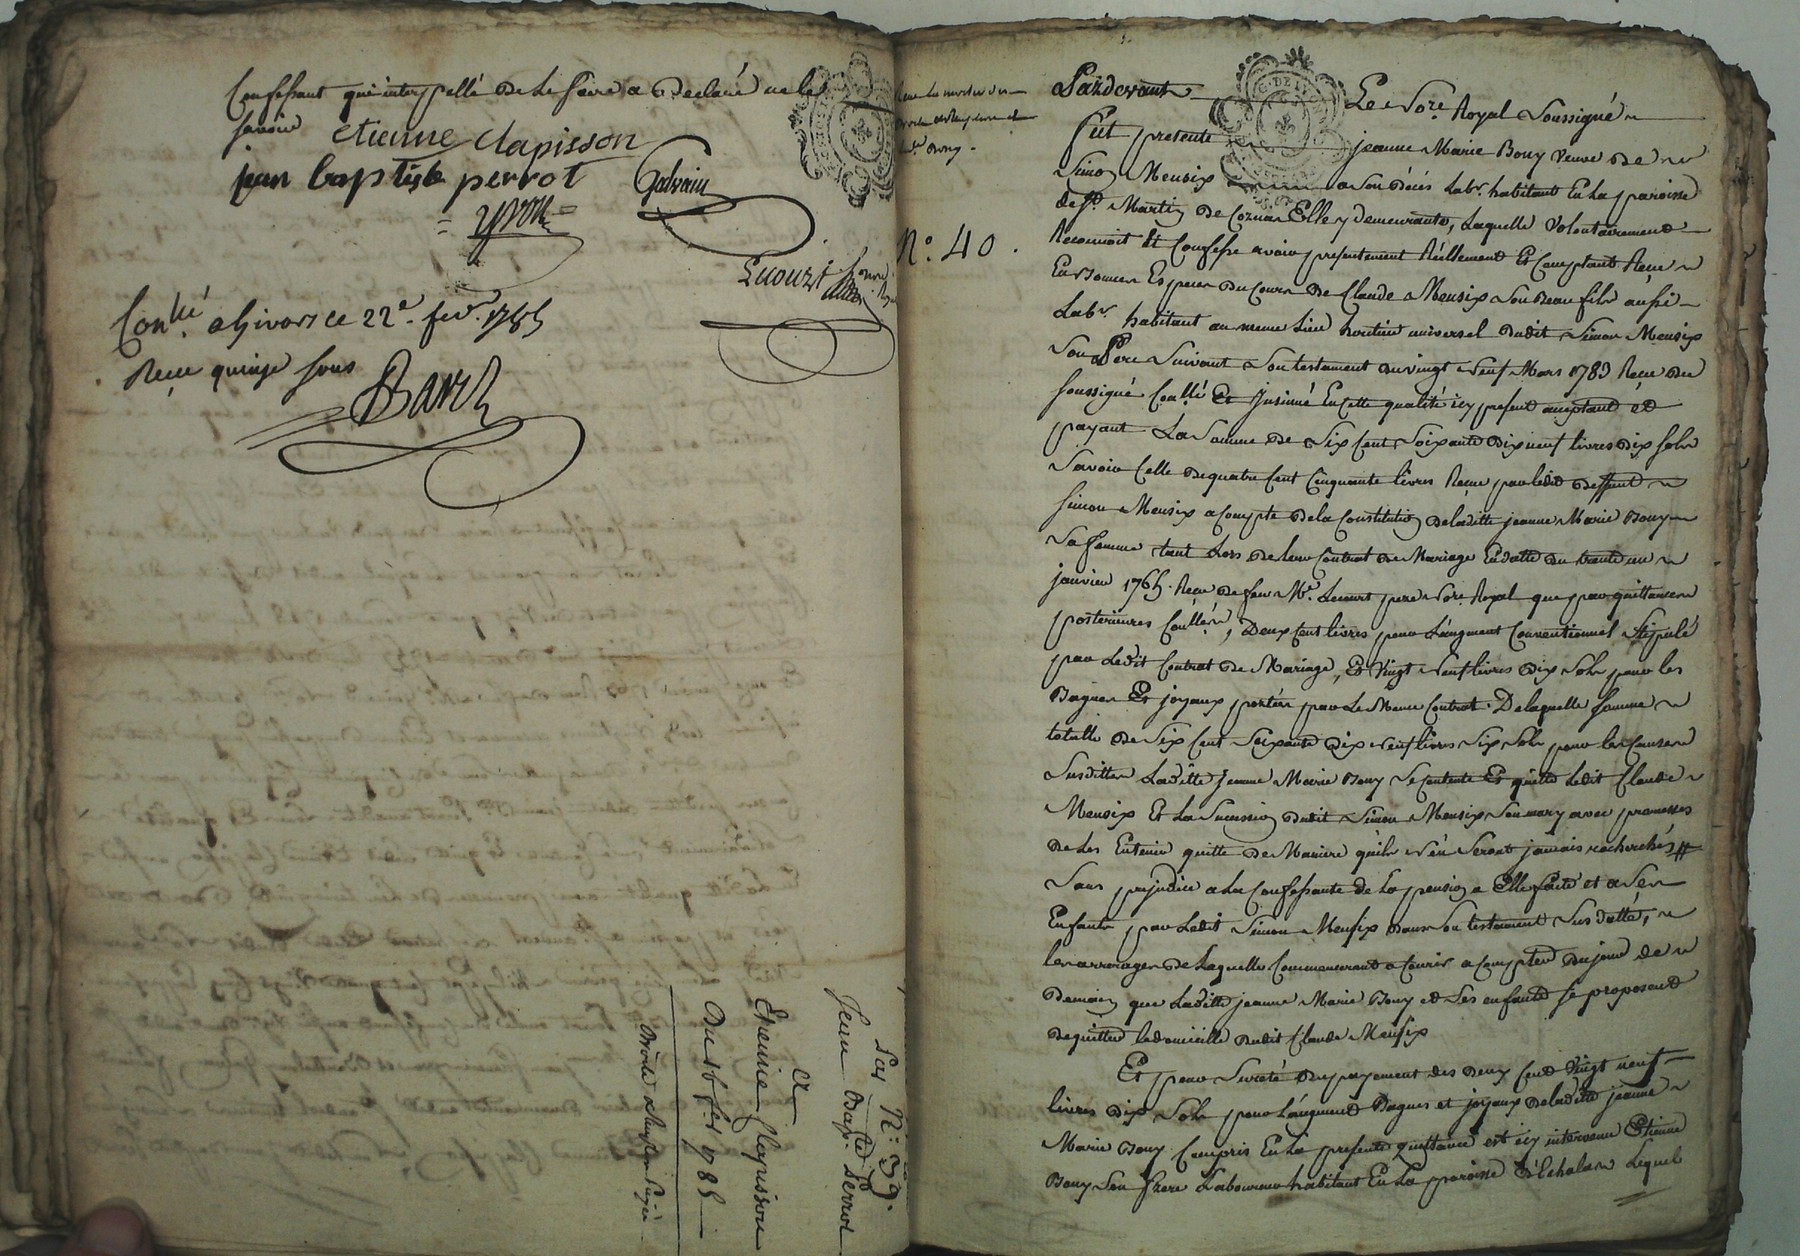 Confessant qui interpellé de le faire a declaré ne le
scavoir etienne clapisson
jean baptiste perrot
Lecourt
Conlé a Givors ce 22e fevr. 1785
Reçu quinze sous
Baret
Pas N: 39.
Jean Bapte perrot
Etienne Clapisson
Du 16 fer 1785
N: 40.
Pardevant Le Nore Royal Soussigné
Fut presente jeanne Marie Bouy Veuve de
Simon Meusix a son décès labr habitant En La paroisse
de St Martin de Cornas Elle y demeurante, Laquelle Volontairement
Reconnoit Et Confesse avoir presentement Réellement Et Comptant Reçu
En bonnes Especes du Cours de Claude Meusix Son Beau fils aussi
Labr habitant au meme Lieu heritier universel dudit Simon Meusix
Son Pere Suivant Son testament du vingt Neuf Mars 1783 Reçu du
soussigné Conlé Et Insinué En cette qualité icy present aceptant et
payant La Somme de Six Cent Soixante dix neuf livres dix sols
Savoir Celle de quatre Cent Cinquante livres Reçue par ledit deffunt
Simon Meusix a Compte de la Constitution de laditte jeanne Marie Bouy
Sa femme tant Lors de leur Contrat de Mariage En datte du trente un
janvier 1765. Reçu de feu Me. Lecourt pere Nore Royal que par quittances
posterieures Conllées, Deux Cent livres pour L'augment Conventionnel Stipulé
par Ledit Contrat de Mariage, Et Vingt Neuf livres dix Sols pour les
Bagues Et joyaux portés par Le Meme Contrat. De laquelle somme
totalle de Six Cent Soixante dix Neuf livres dix Sols pour les Causes
Susdittes Laditte jeanne Marie Bouy Se Contente Et quitte Ledit Claude
Meusix Et La Succession dudit Simon Meusix Son mary avec promesses
de Les En tenir quitte de Maniere qu'ils N'en Seront jamais recherchés
Sans prejudice a La Confessante de La pension a Elle faite et a Ses
Enfants par Ledit Simon Meusix dans Son testament Susdatté,
les arrerages de Laquelle Commenceront a Courir a Compter du jour de
demain que Laditte jeanne Marie Bouy et Ses enfants se proposent
de quitter Le domicille dudit Claude Meusix
Et pour Sureté du payement des deux Cent Vingt neuf
livres dix Sols pour L'augment Bagues et joyaux de laditte jeanne
Marie Bouy Compris En La presente quittance est icy intervenu Etienne
Bouy Son frere Laboureur habitant En La paroisse d'Echalas Lequel